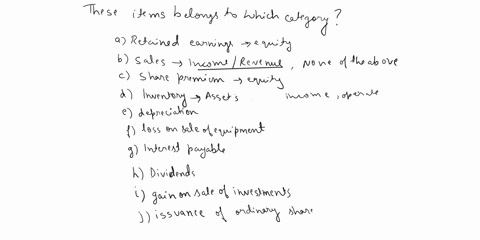 These items belongs to which category?
a) Retained earnings → equity
b) Sales → Income/Revenue, None of the above
c) Share premium → equity
d) Inventory → Assets income, operate
e) depreciation
f) loss on sale of equipment
g) Interest payable
h) Dividends
i) gain on sale of investments
j) issuance of ordinary share